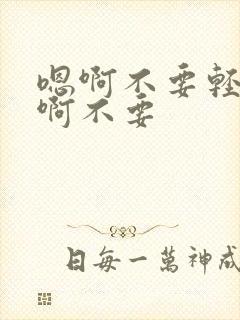 嗯啊不要轻
啊不要
日每一萬神成